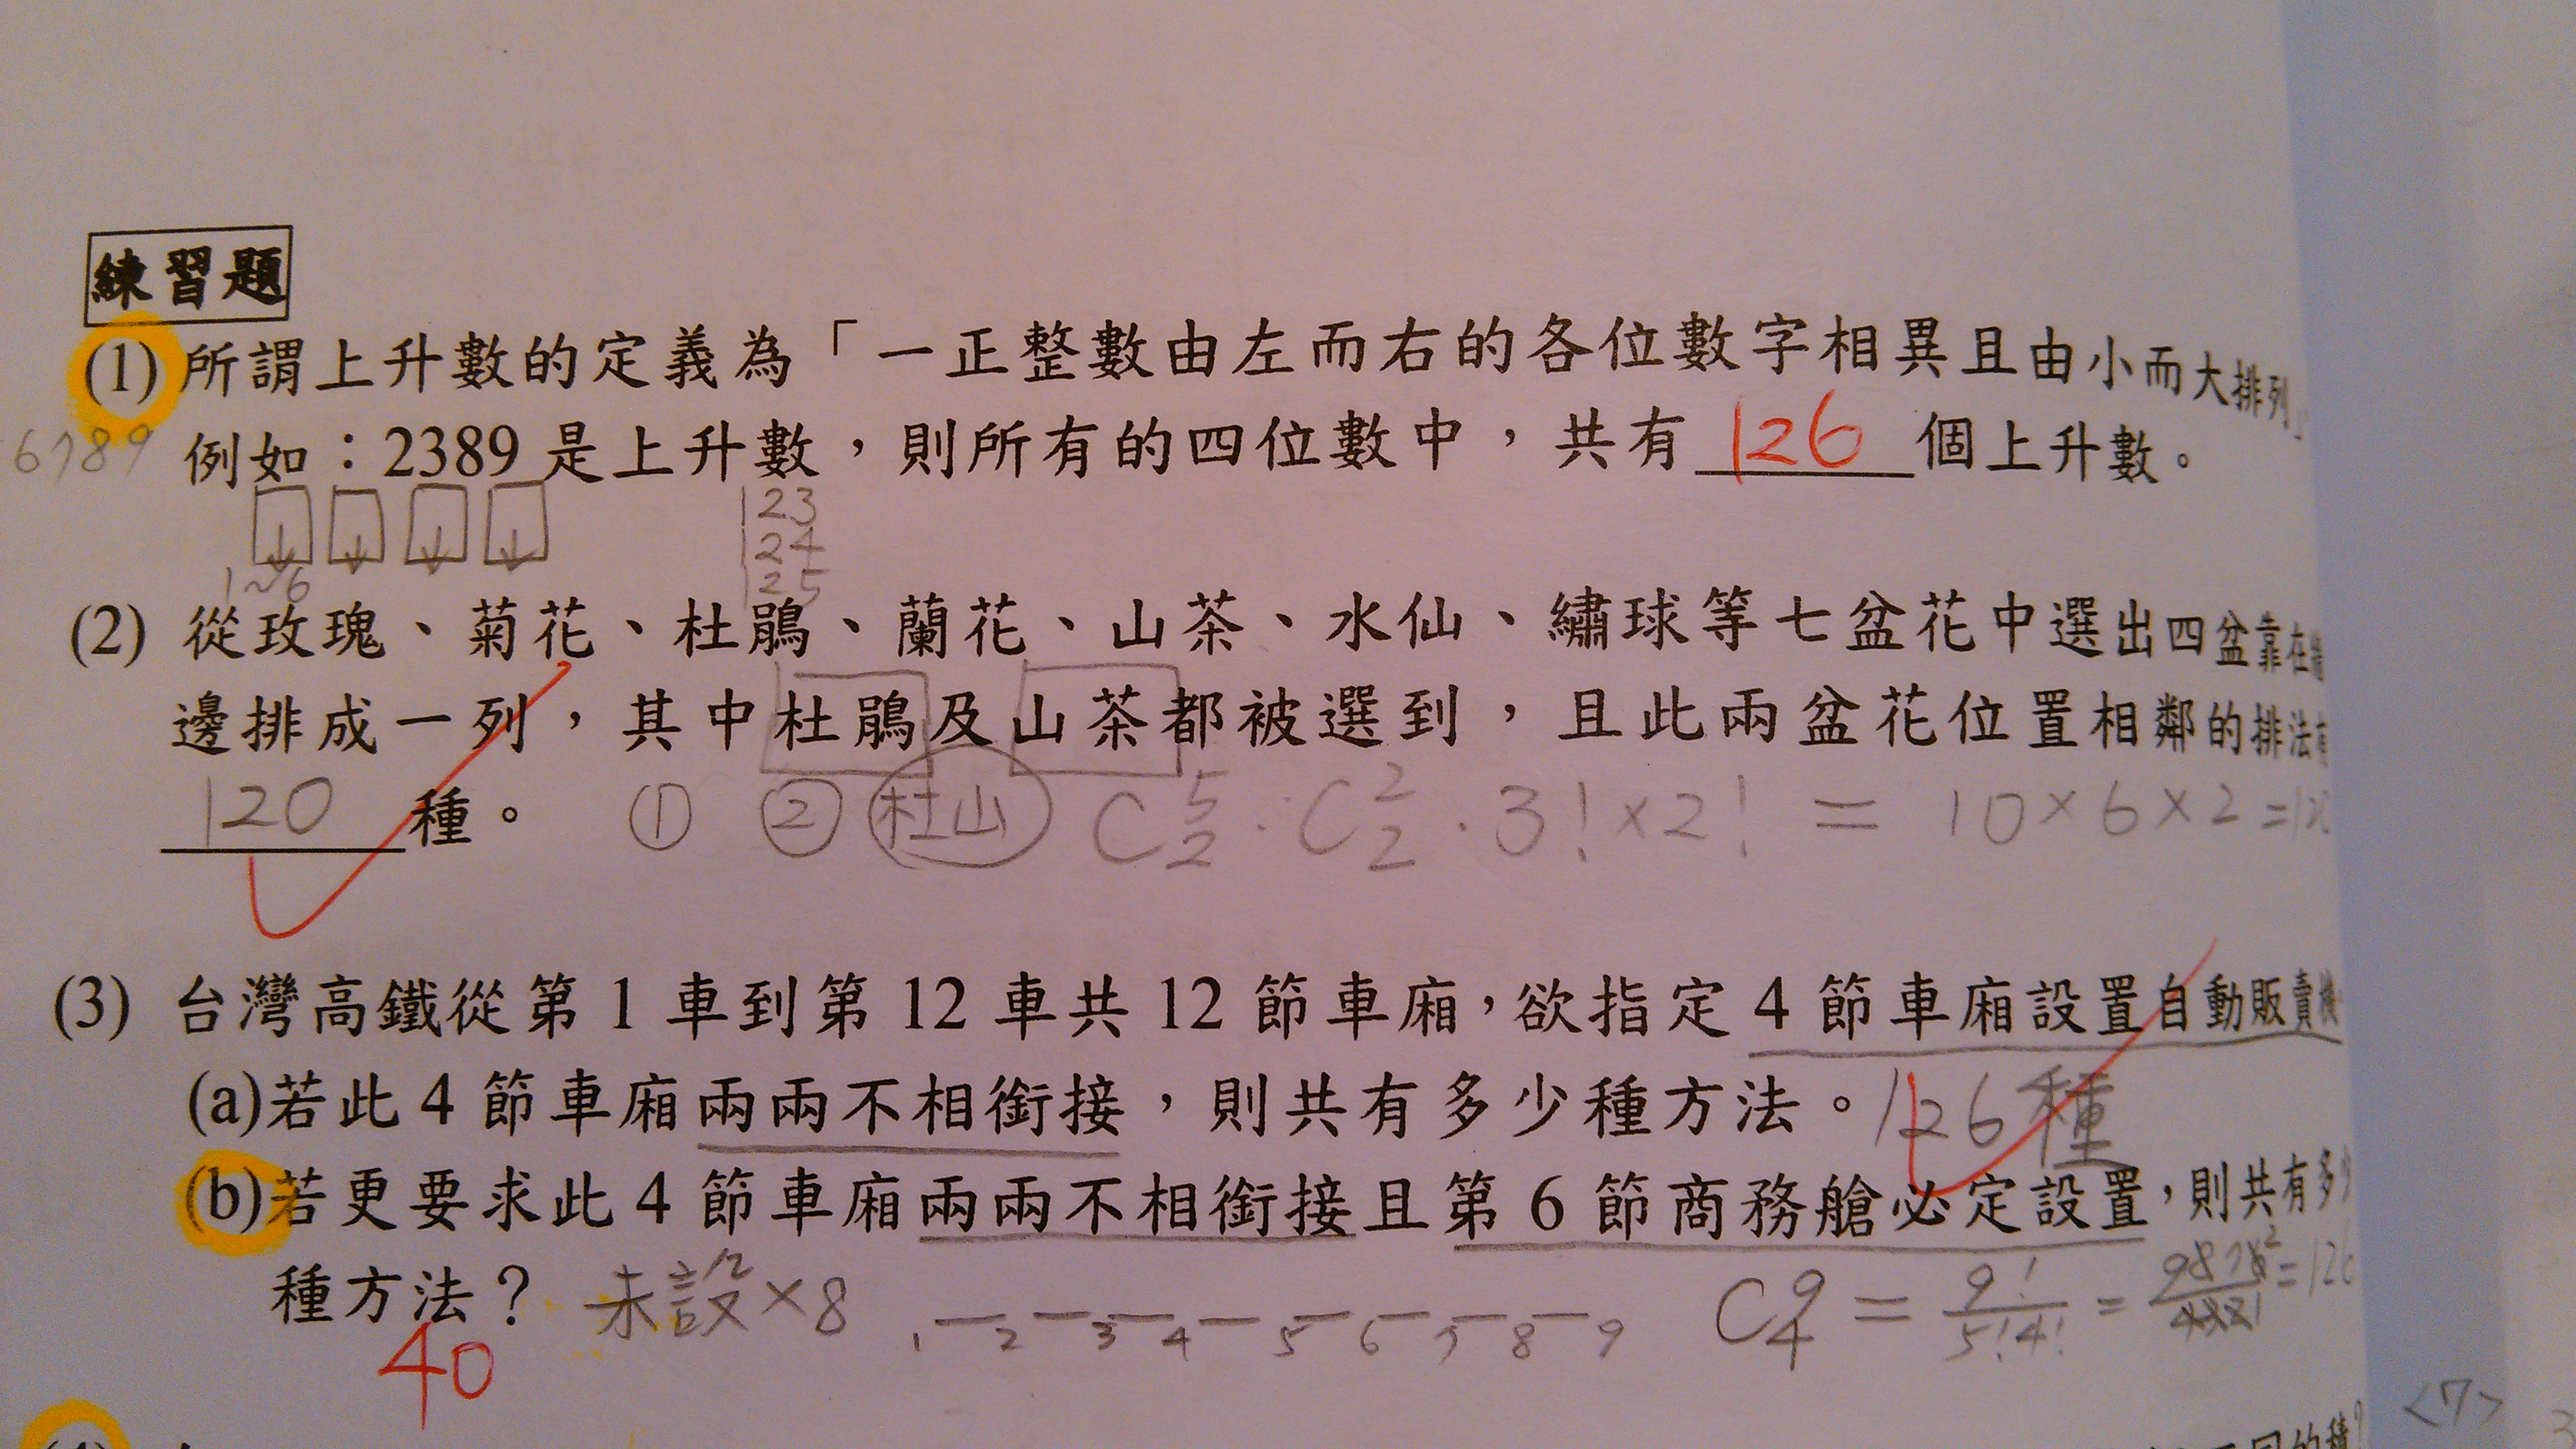 練習題
(1) 所謂上升數的定義為「一正整數由左而右的各位數字相異且由小而大排列」
6789 例如：2389 是上升數，則所有的四位數中，共有 126 個上升數。
123
124
1~6 125
(2) 從玫瑰、菊花、杜鵑、蘭花、山茶、水仙、繡球等七盆花中選出四盆靠在
邊排成一列，其中杜鵑及山茶都被選到，且此兩盆花位置相鄰的排法有
120 種。 ① ② 杜山 C⁵₂ · C²₂ · 3! × 2! = 10 × 6 × 2 =
(3) 台灣高鐵從第 1 車到第 12 車共 12 節車廂，欲指定 4 節車廂設置自動販賣機
(a)若此 4 節車廂兩兩不相銜接，則共有多少種方法。126種
(b)若更要求此 4 節車廂兩兩不相銜接且第 6 節商務艙必定設置，則共有多少
種方法？ 未設×8 1 2 3 4 5 6 7 8 9 C⁹₄ = 9!/5!4! = = 126
40
<7>